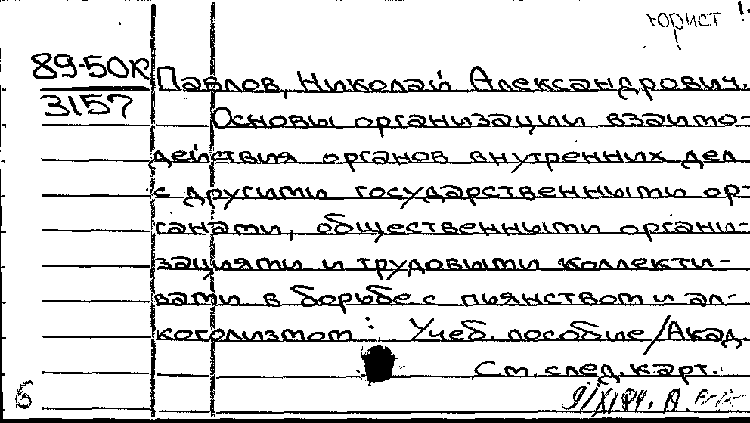 юрист 1.
89-50К Павлов, Николай Александрович.
3157
Основы организации взаимо-
действия органов внутренних дел
с другими государственными ор-
ганами, общественными органи-
зациями и трудовыми коллекти-
вами в борьбе с пьянством и ал-
коголизмом: Учеб. пособие / Акад.
См. след. карт.
6